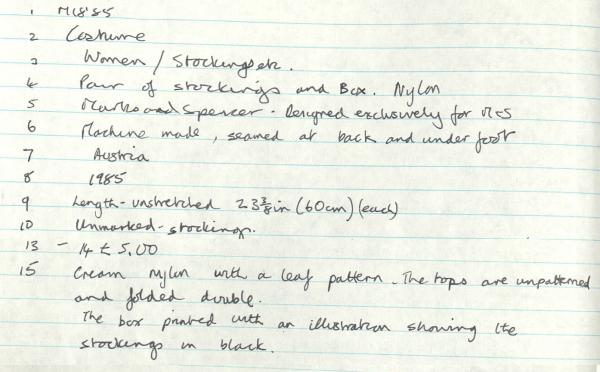 1 M18'85
2 Costume
3 Women / Stockings etc.
4 Pair of stockings and Box. Nylon
5 Marks and Spencer - Designed exclusively for M+S
6 Machine made, seamed at back and under foot
7 Austria
8 1985
9 Length - unstretched 23 5/8 in (60cm) (each)
10 Unmarked - stockings.
13 - 14 £ 5.00
15 Cream nylon with a leaf pattern. The tops are unpatterned
and folded double.
The box printed with an illustration showing the
stockings in black.